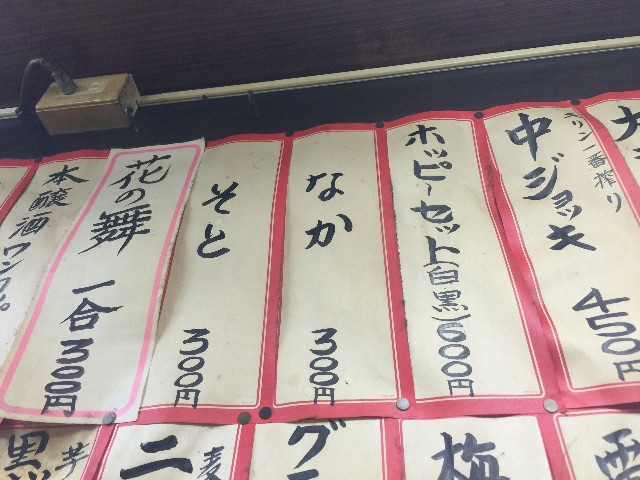 中ジョッキ
キリン一番搾り
450円
ホッピーセット(白黒)
600円
なか
300円
そと
300円
花の舞
一合
300円
本醸酒ワンカップ
麦
芋